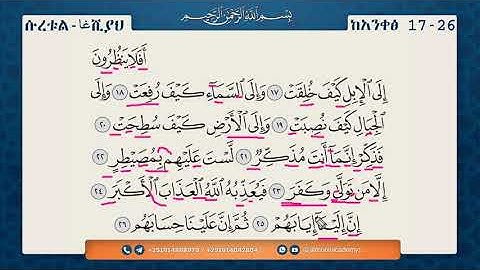 ሱረቱል-غاሺያህ
بِسْمِ اللَّهِ الرَّحْمَٰنِ الرَّحِيمِ
ከአንቀፅ 17-26
أَفَلَا يَنظُرُونَ
إِلَى الْإِبِلِ كَيْفَ خُلِقَتْ ١٧ وَإِلَى السَّمَاءِ كَيْفَ رُفِعَتْ ١٨ وَإِلَى
الْجِبَالِ كَيْفَ نُصِبَتْ ١٩ وَإِلَى الْأَرْضِ كَيْفَ سُطِحَتْ ٢٠
فَذَكِّرْ إِنَّمَا أَنتَ مُذَكِّرٌ ٢١ لَّسْتَ عَلَيْهِم بِمُصَيْطِرٍ ٢٢
إِلَّا مَن تَوَلَّىٰ وَكَفَرَ ٢٣ فَيُعَذِّبُهُ اللَّهُ الْعَذَابَ الْأَكْبَرَ ٢٤
إِنَّ إِلَيْنَا إِيَابَهُمْ ٢٥ ثُمَّ إِنَّ عَلَيْنَا حِسَابَهُم ٢٦